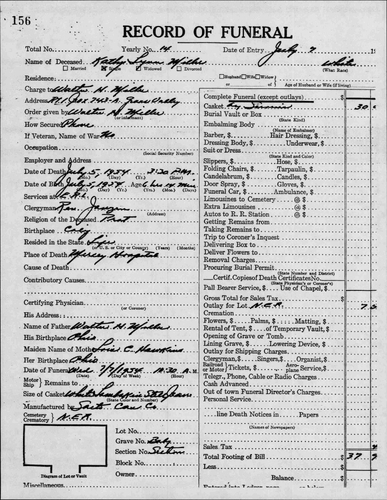 156
RECORD OF FUNERAL
Total No. Yearly No. 14 Date of Entry July 7
Name of Deceased Kathy Lynn Miller White
Married Single Widowed Divorced (What Race)
Residence: Husband Wife Widow of
Age of Husband or Wife (if living)
Charge to Walter H. Miller
Address Rt 1 Box Grass Valley
Order given by Walter H. Miller
How Secured Phone
If Veteran, Name of War No
Occupation
(Social Security Number)
Employer and Address
Date of Death July 5, 1954 3:20 P.M.
Date of Birth July 5, 1954 Age 6 hrs 14 min
Services at
Clergyman Rev.
Religion of the Deceased Prot
(Address)
Birthplace City
Resided in the State Life
(or U. S. or City or County) (Years) (Months)
Place of Death Mercy Hospital
Cause of Death
Contributory Causes
Certifying Physician
(or Coroner)
His Address
Name of Father Walter H. Miller
His Birthplace Ohio
Maiden Name of Mother Lois C. Hawkins
Her Birthplace Ohio
Date of Funeral Wed 7/7/1954 10:30 A.M.
Motor Ship Remains to
Size of Casket White
(State Color and Number)
Manufactured by Cas Co
Cemetery Crematory N.E.R.
Lot No.
Grave No. Baby
Section No. Section
Block No.
Owner
Diagram of Lot or Vault
Miscellaneous
Complete Funeral (except outlays) $
Casket 30
Burial Vault or Box
(State Kind)
Embalming Body
(Name of Embalmer)
Barber, $ Hair Dressing, $
Dressing Body, $ Underwear, $
Suit or Dress
(State Kind and Color)
Slippers, $ Hose, $
Folding Chairs, $ Tarpaulin, $
Candelabrum, $ Candles, $
Door Spray, $ Gloves, $
Funeral Car, $ Ambulance, $
Limousines to Cemetery @ $
Extra Limousines @ $
Autos to R. R. Station @ $
Getting Remains from
Taking Remains to
Trip to Coroner's Inquest
Delivering Box to
Deliver Flowers to
Removal Charges
Procuring Burial Permit
(State Number and District)
Certif. Copies of Death Certificates No.
(State Physician's or Coroner's)
Pall Bearer Service, $ Use of Chapel, $
Gross Total for Sales Tax $
Outlay for Lot N.E.R. 7
Cremation
Flowers, $ Palms, $ Matting, $
Rental of Tent, $ of Temporary Vault, $
Opening of Grave or Tomb
Lining Grave, $ Lowering Device, $
Outlay for Shipping Charges
Clergyman, $ Singers, $ Organist, $
Tickets, $ plane Service, $
Telegr., Phone, Cable or Radio Charges
Cash Advanced
Out of town Funeral Director's Charges
Personal Service
line Death Notices in Papers
(Names of Newspapers)
Sales Tax $
Total Footing of Bill $ 37
Less $
Balance $